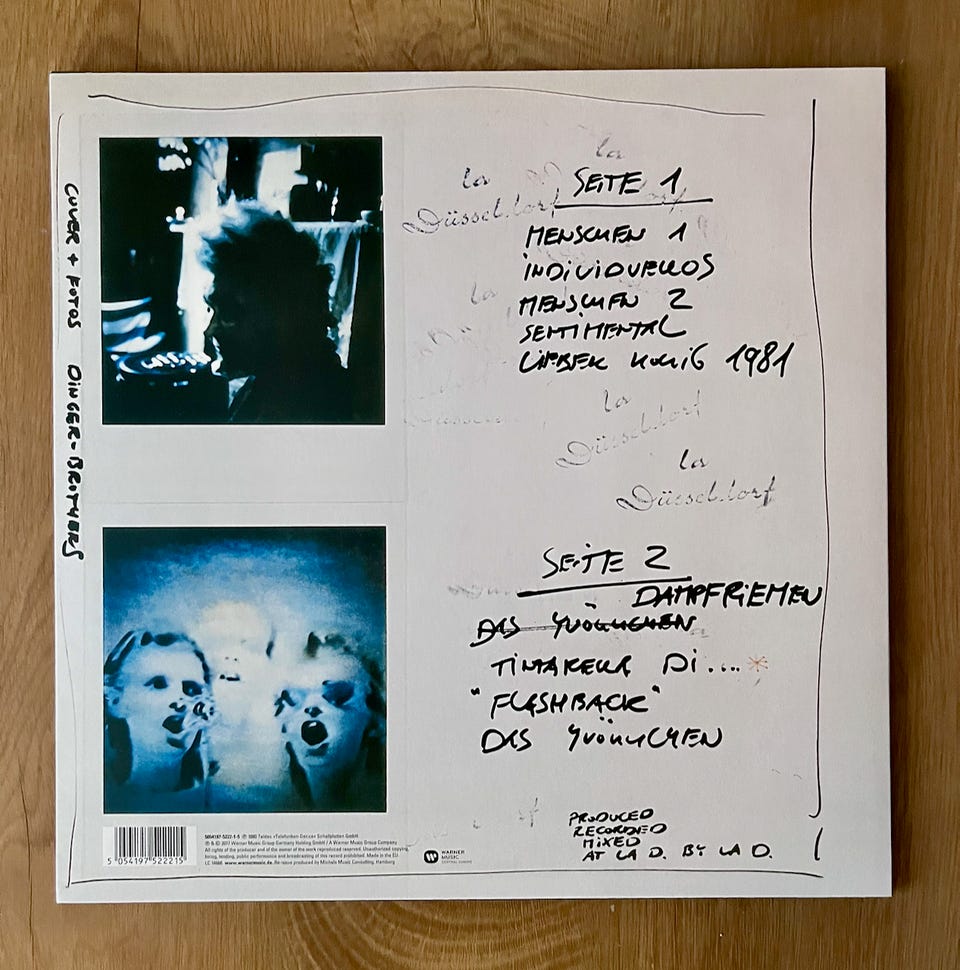 COVER + FOTOS DINGER-BROTHERS
la
Düsseldorf
la
SEITE 1
MENSCHEN 1
INDIVIDUELLOS
MENSCHEN 2
SENTIMENTAL
LIEBER HONIG 1981
la
la
Düsseldorf
la
Düsseldorf
SEITE 2
DAMPFRIEMEN
DAS YVÖLLICHEN
TINTARELLA DI....*
"FLASHBACK"
DAS YVÖLLICHEN
PRODUCED
RECORDED
MIXED
AT LA D. BY LA D.
5 054197 522215
5054197-5222-1-5 ℗ 1980 Teldec »Telefunken-Decca« Schallplatten GmbH
℗ & © 2017 Warner Music Group Germany Holding GmbH / A Warner Music Group Company
All rights of the producer and of the owner of the work reproduced reserved. Unauthorized copying,
hiring, lending, public performance and broadcasting of this record prohibited. Made in the EU.
LC 14666 www.warnermusic.de Re-issue produced by Michelis Music Consulting, Hamburg
WARNER
MUSIC
CENTRAL EUROPE